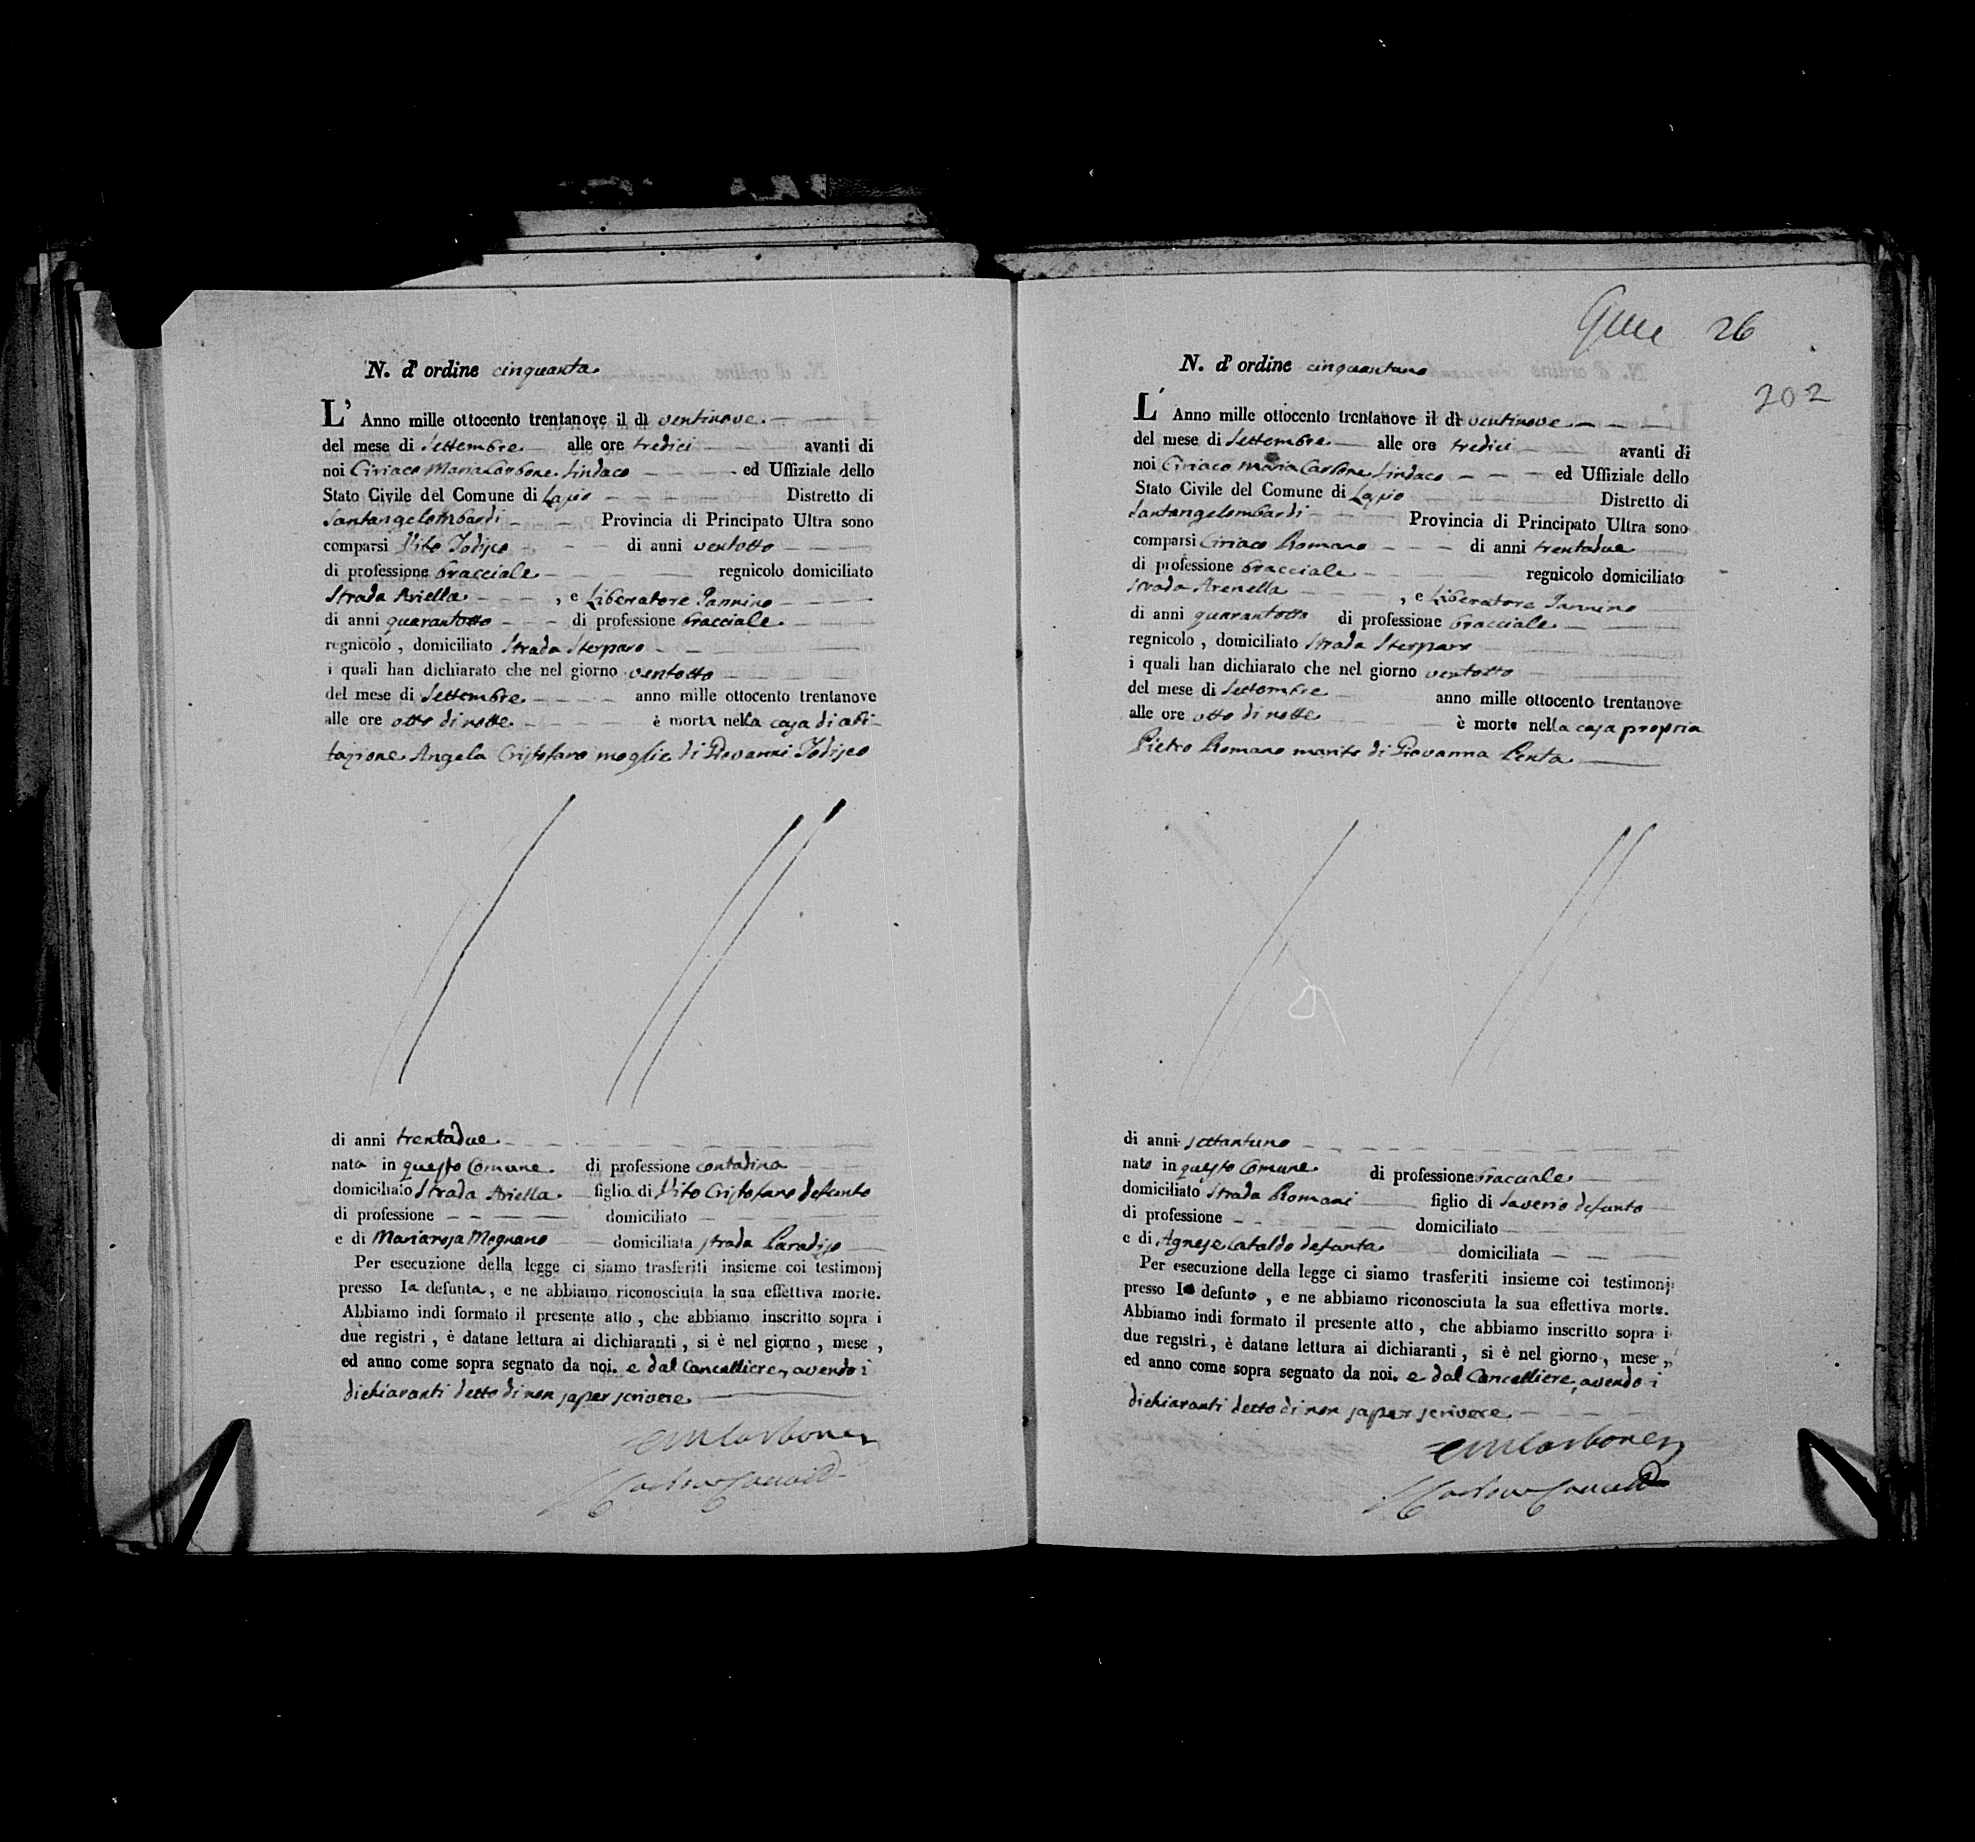 N. d' ordine cinquanta
L' Anno mille ottocento trentanove il dì ventinove
del mese di Settembre alle ore tredici avanti di
noi Ciriaco Maria Carbone Sindaco ed Uffiziale dello
Stato Civile del Comune di Lapio Distretto di
Santangelombardi Provincia di Principato Ultra sono
comparsi Vito Jodisco di anni ventotto
di professione bracciale regnicolo domiciliato
Strada Ariella , e Liberatore Jannino
di anni quarantotto di professione bracciale
regnicolo , domiciliato Strada Sterparo
i quali han dichiarato che nel giorno ventotto
del mese di Settembre anno mille ottocento trentanove
alle ore otto di notte è morta nella casa di abi-
tazione Angela Cristofaro moglie di Giovanni Jodisco
di anni trentadue
nata in questo Comune di professione contadina
domiciliato Strada Ariella figlia di Vito Cristofaro defunto
di professione domiciliato
e di Mariarosa Megnano domiciliata strada Paradiso
Per esecuzione della legge ci siamo trasferiti insieme coi testimonj
presso la defunta , e ne abbiamo riconosciuta la sua effettiva morte.
Abbiamo indi formato il presente atto , che abbiamo inscritto sopra i
due registri , è datane lettura ai dichiaranti , si è nel giorno , mese ,
ed anno come sopra segnato da noi. e dal Cancelliere, avendo i
dichiaranti detto di non saper scrivere
CMCarbone
Gue 26
202
N. d' ordine cinquantuno
L' Anno mille ottocento trentanove il dì ventinove
del mese di Settembre alle ore tredici avanti di
noi Ciriaco Maria Carbone Sindaco ed Uffiziale dello
Stato Civile del Comune di Lapio Distretto di
Santangelombardi Provincia di Principato Ultra sono
comparsi Ciriaco Romano di anni trentadue
di professione bracciale regnicolo domiciliato
strada Arenella , e Liberatore Jannino
di anni quarantotto di professione bracciale
regnicolo , domiciliato Strada Sterparo
i quali han dichiarato che nel giorno ventotto
del mese di Settembre anno mille ottocento trentanove
alle ore otto di notte è morto nella casa propria
Pietro Romano marito di Giovanna Penta
di anni settantuno
nato in questo Comune di professione bracciale
domiciliato Strada Romani figlio di Saverio defunto
di professione domiciliato
e di Agnese Cataldo defunta domiciliata
Per esecuzione della legge ci siamo trasferiti insieme coi testimonj
presso Io defunto , e ne abbiamo riconosciuta la sua effettiva morte.
Abbiamo indi formato il presente atto , che abbiamo inscritto sopra i
due registri , è datane lettura ai dichiaranti , si è nel giorno , mese ,
ed anno come sopra segnato da noi. e dal Cancelliere, avendo i
dichiaranti detto di non saper scrivere
CMCarbone